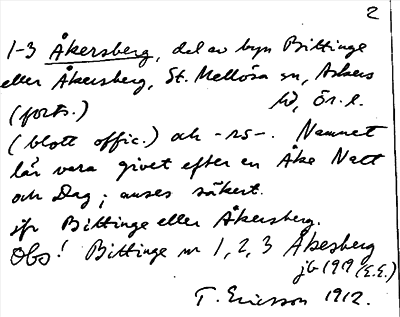 2
1-3 Åkersberg, del av byn Bittinge
eller Åkersberg, St. Mellösa sn, Askers
(forts.) hd, Ör. l.
(blott offic.) ock -rs-. Namnet
lär vara givet efter en Åke Natt
och Dag; anses säkert.
jfr Bittinge eller Åkersberg.
Obs! Bittinge nr 1, 2, 3 Åkesberg
jb 1919 (E.E.)
T. Ericsson 1912.